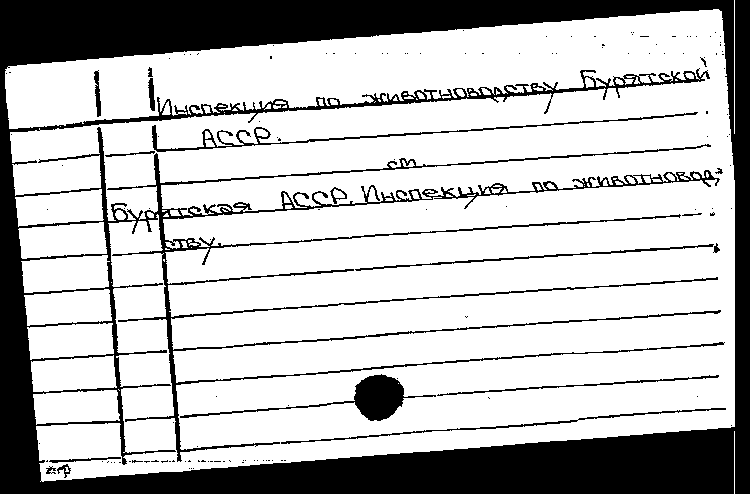 Инспекция по животноводству Бурятской
АССР.
см.
Бурятская АССР. Инспекция по животновод-
ству.